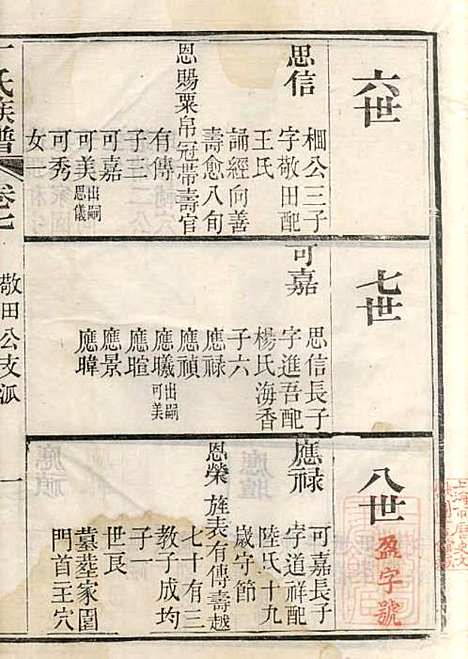 六世
思信
棞公三子
字敬田配
王氏
誦經向善
壽愈八旬
恩賜粟帛冠帶壽官
有傳
子三
可嘉
可美出嗣思儀
可秀
女一
七世
可嘉
思信長子
字進吾配
楊氏海香
子六
應祿
應禎
應曦出嗣可美
應暄
應景
應暐
八世
應祿
可嘉長子
字道祥配
陸氏十九
歲守節
恩榮旌表有傳壽越
七十有三
教子成均
子一
世長
墓葬家園
門首王穴
氏族譜
卷七
敬田公支派
一
盈字號